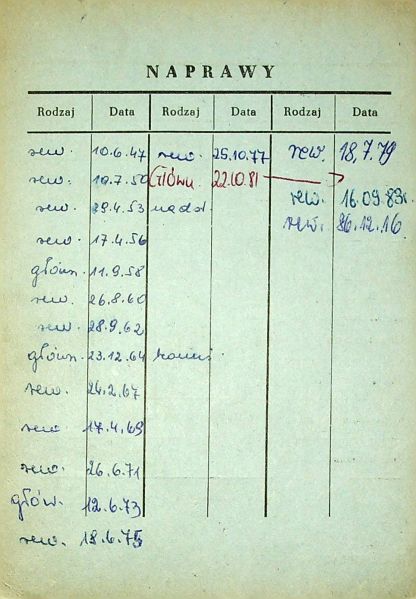 NAPRAWY
Rodzaj Data Rodzaj Data Rodzaj Data
rew. 10.6.47 rew. 25.10.77 rew. 18,7.79
rew. 10.7.50 Główn. 22.10.81
rew. 29.4.53 nadd rew. 16.09.83r.
rew. 86.12.16
rew. 17.4.56
główn. 11.9.58
rew. 26.8.60
rew. 28.9.62
główn. 23.12.64
rew. 24.2.67
rew. 17.4.69
rew. 26.6.71
głów. 12.6.73
rew. 18.6.75